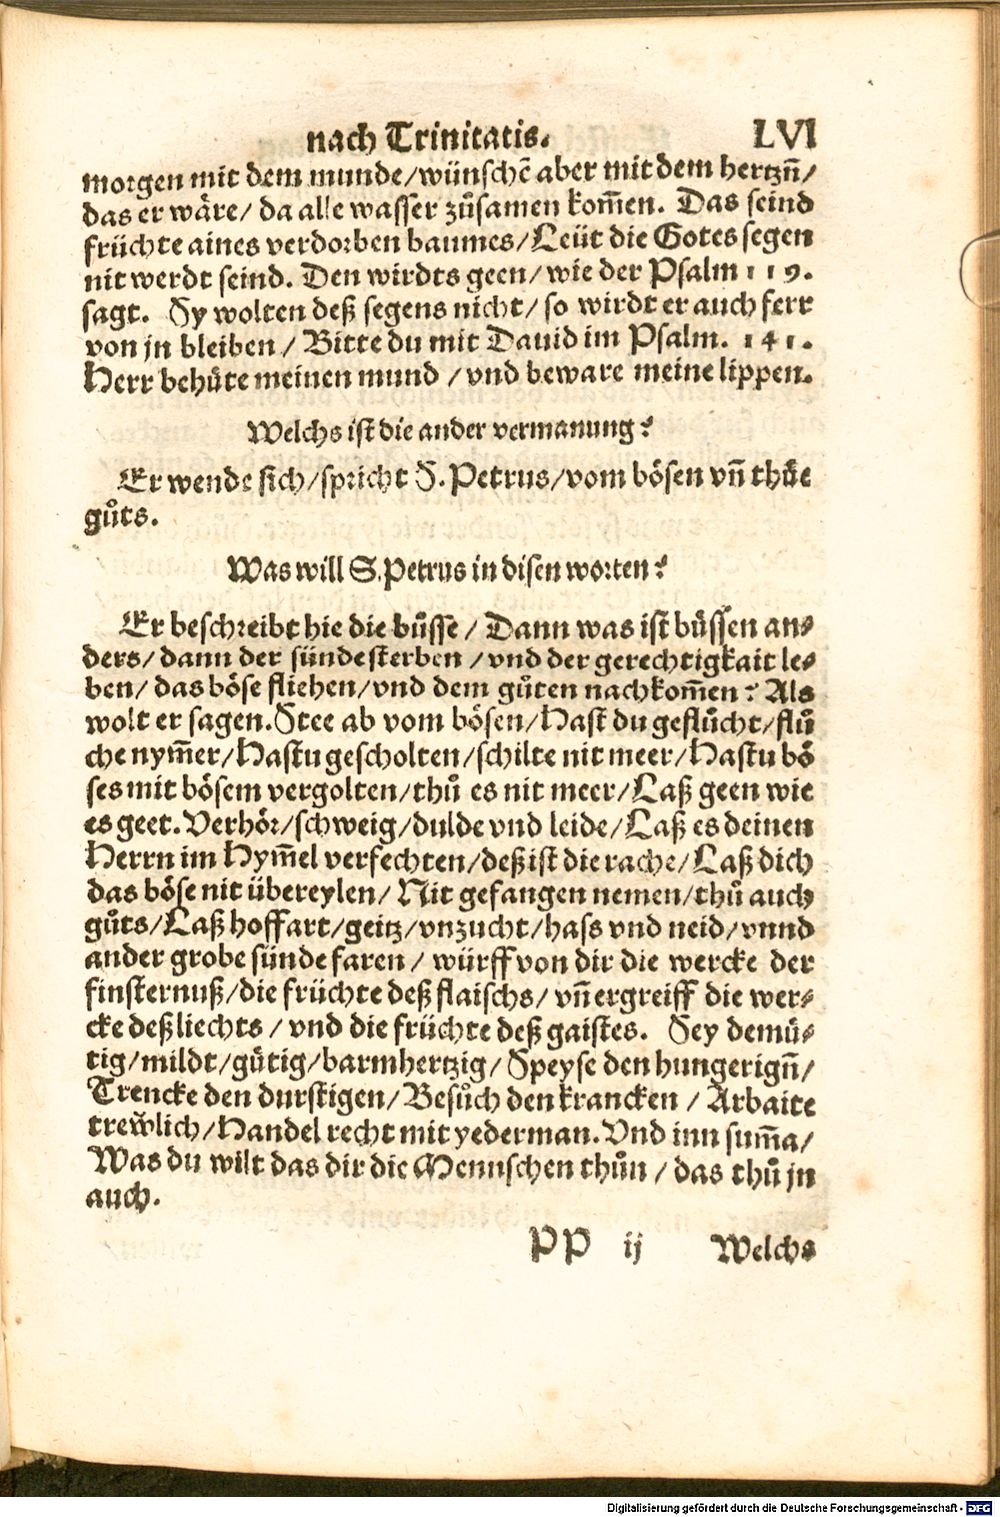 nach Trinitatis. LVI
morgen mit dem munde/wünschē aber mit dem hertzn̄/
das er wäre/ da alle wasser zůsamen kom̄en. Das seind
früchte aines verdorben baumes/Leüt die Gotes segen
nit werdt seind. Den wirdts geen/wie der Psalm 119.
sagt. Sy wolten deß segens nicht/ so wirdt er auch ferr
von jn bleiben/ Bitte du mit Dauid im Psalm. 141.
Herr behüte meinen mund /vnd beware meine lippen.
Welchs ist die ander vermanung?
Er wende sich/spricht S. Petrus/vom bösen vn̄ thüe
gůts.
Was will S. Petrus in disen worten?
Er beschreibt hie die bůsse/ Dann was ist büssen an⸗
ders/dann der sünde sterben /vnd der gerechtigkait le⸗
ben/ das böse fliehen/vnd dem gůten nachkom̄en? Als
wolt er sagen. Stee ab vom bösen/Hast du geflůcht/flů
che nym̄er/Hastu gescholten/schilte nit meer/Hastu bö
ses mit bösem vergolten/thů es nit meer/Laß geen wie
es geet. Verhör/schweig/dulde vnd leide/Laß es deinen
Herrn im Hym̄el verfechten/deß ist die rache/Laß dich
das böse nit übereylen/Nit gefangen nemen/thů auch
gůts/Laß hoffart/geitz/vnzucht/hass vnd neid/vnnd
ander grobe sünde faren/ würff von dir die wercke der
finsternuß/die früchte deß flaischs/ vn̄ ergreiff die wer⸗
cke deß liechts /vnd die früchte deß gaistes. Sey demü⸗
tig/mildt/gütig/barmhertzig/Speyse den hungerign̄/
Trencke den durstigen/Besůch den krancken /Arbaite
trewlich/Handel recht mit yederman. Vnd inn sum̄a/
Was du wilt das dir die Mennschen thůn /das thů jn
auch.
PP ij Welchs
Digitalisierung gefördert durch die Deutsche Forschungsgemeinschaft - DFG